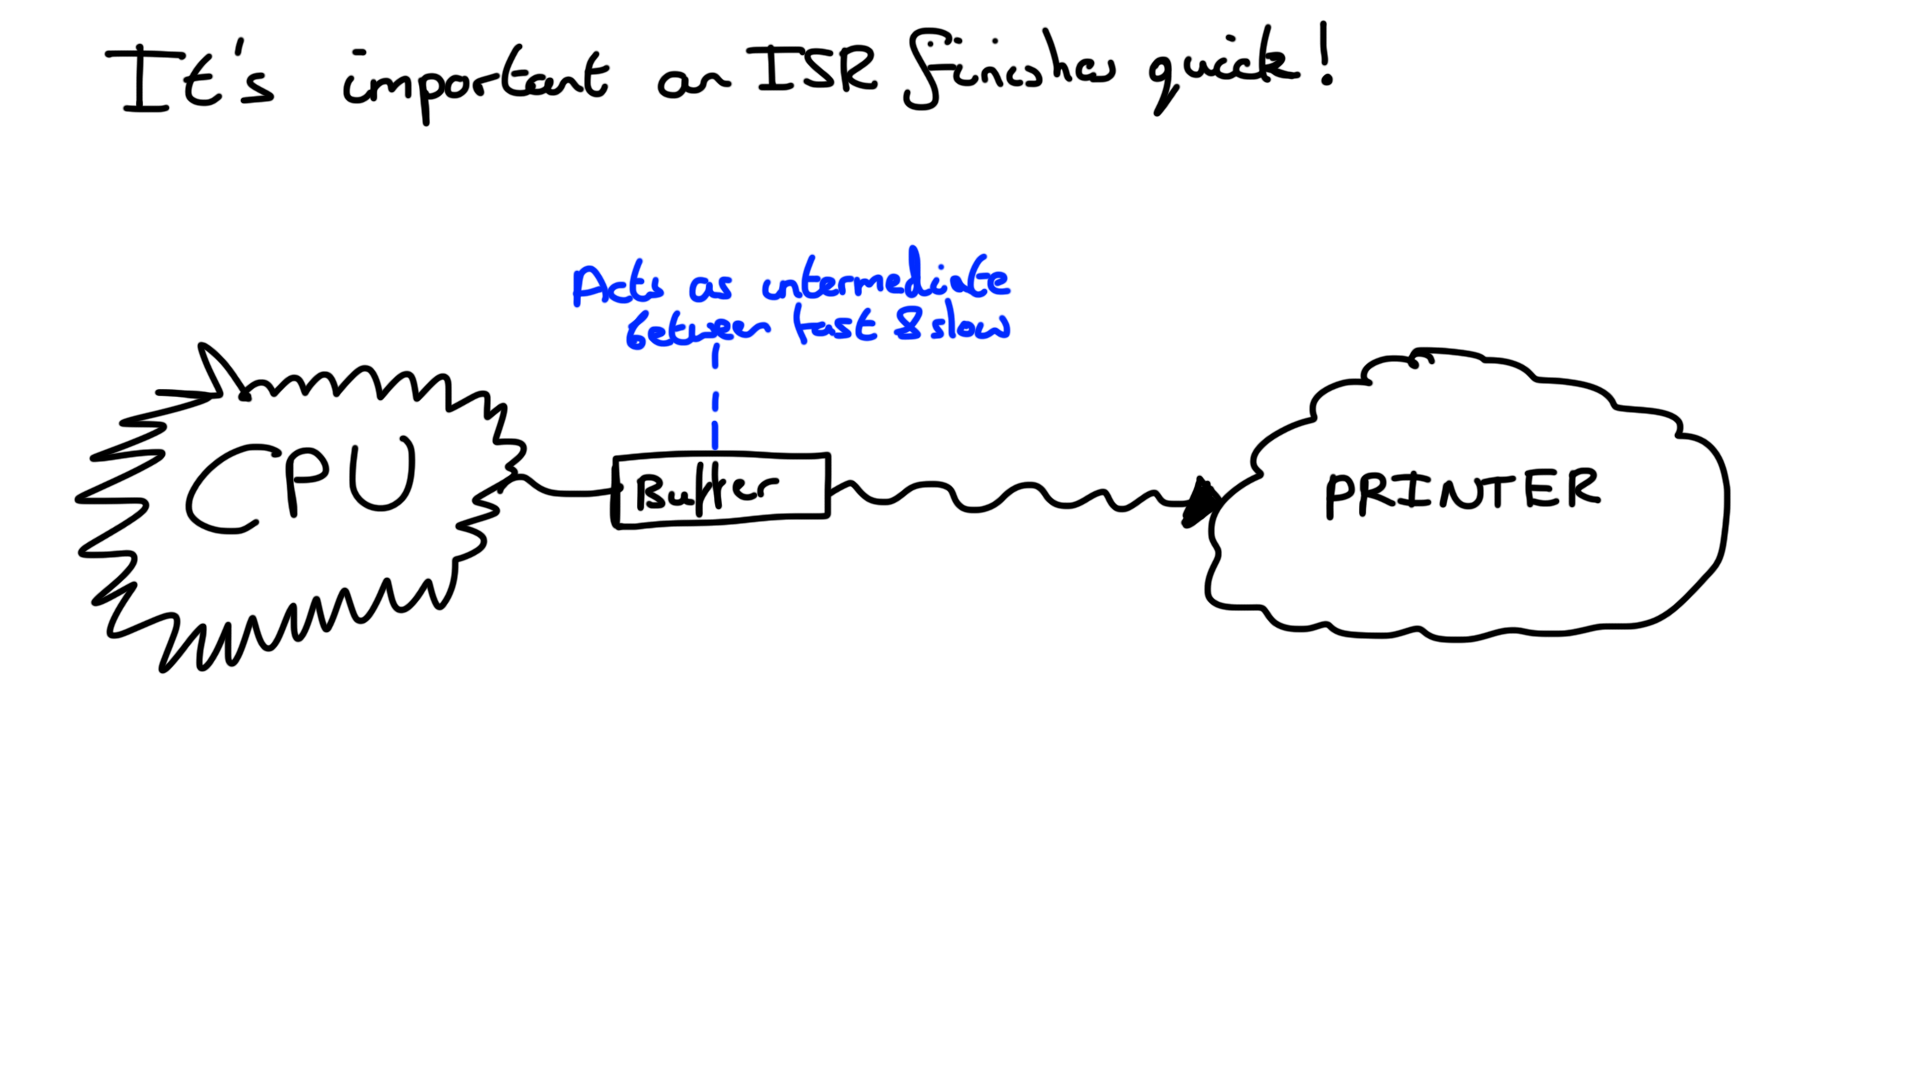 It's important an ISR finishes quick!
Acts as intermediate
between fast & slow
CPU
Buffer
PRINTER